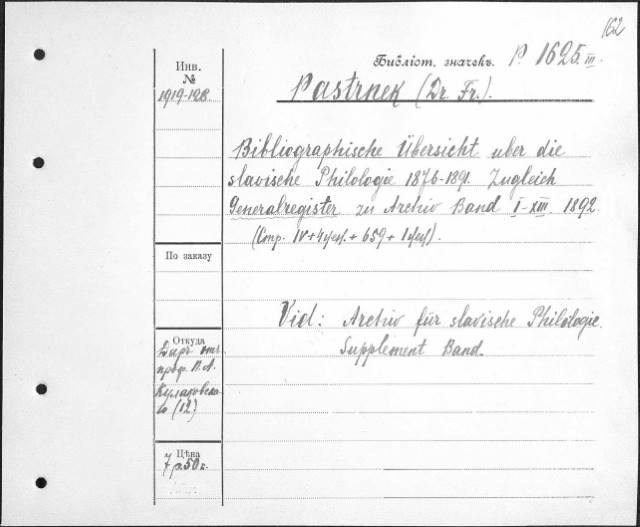 162
Библіот. значекъ. P. 1625.III.
Инв.
№
1919-128
Pastrnek (Dr. Fr.).
Bibliographische Übersicht uber die
slavische Philologie 1876-1891. Zugleich
Generalregister zu Archiv Band I-XIII. 1892.
(Стр. IV+4
+ 659 + 1
).
По заказу
Vid: Archiv für slavische Philologie.
Supplement Band.
Откуда
Даръ отъ
проф. П. А.
Кулаковска-
го (12)
Цѣна
7 р. 50 к.